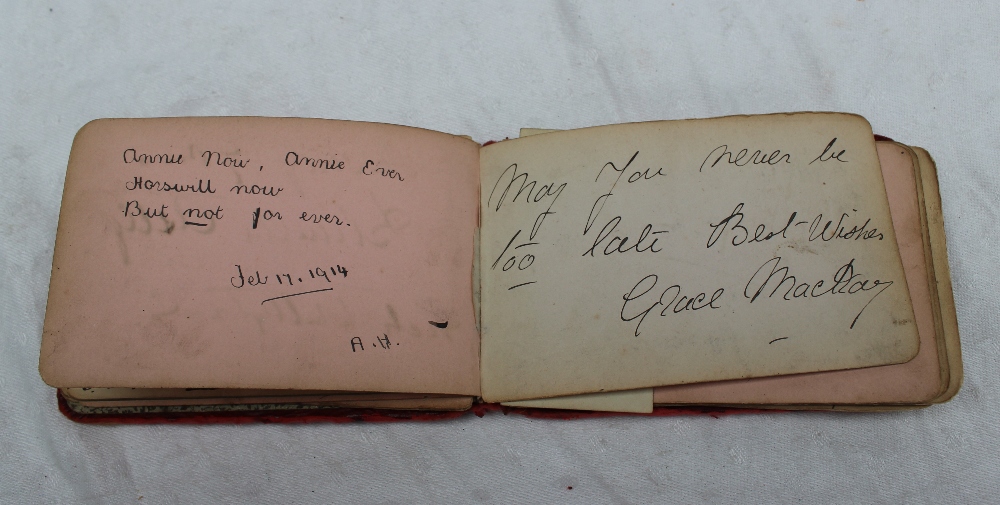 Annie Now, Annie Ever
Horswill now
But not for ever.
Feb 17. 1914
A.H.
May You never be
too late Best Wishes
Grace MacKay